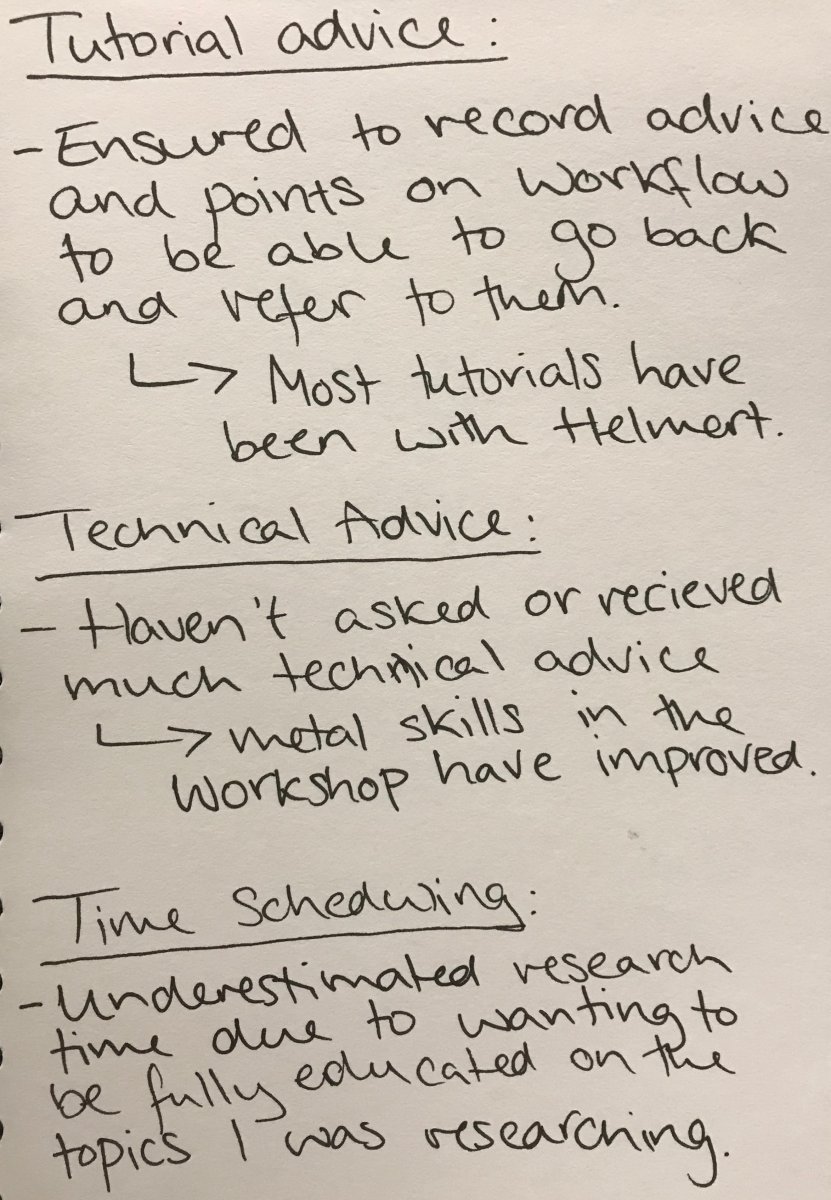 Tutorial advice:
- Ensured to record advice
and points on workflow
to be able to go back
and refer to them.
↳ Most tutorials have
been with Helmert.
Technical Advice:
- Haven't asked or recieved
much technical advice
↳ metal skills in the
workshop have improved.
Time Scheduling:
- Underestimated research
time due to wanting to
be fully educated on the
topics I was researching.